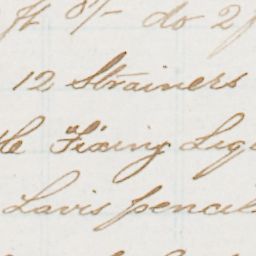 ft 8/- do 2
12 Strainers
"Fixing Liq
Lavis pencil